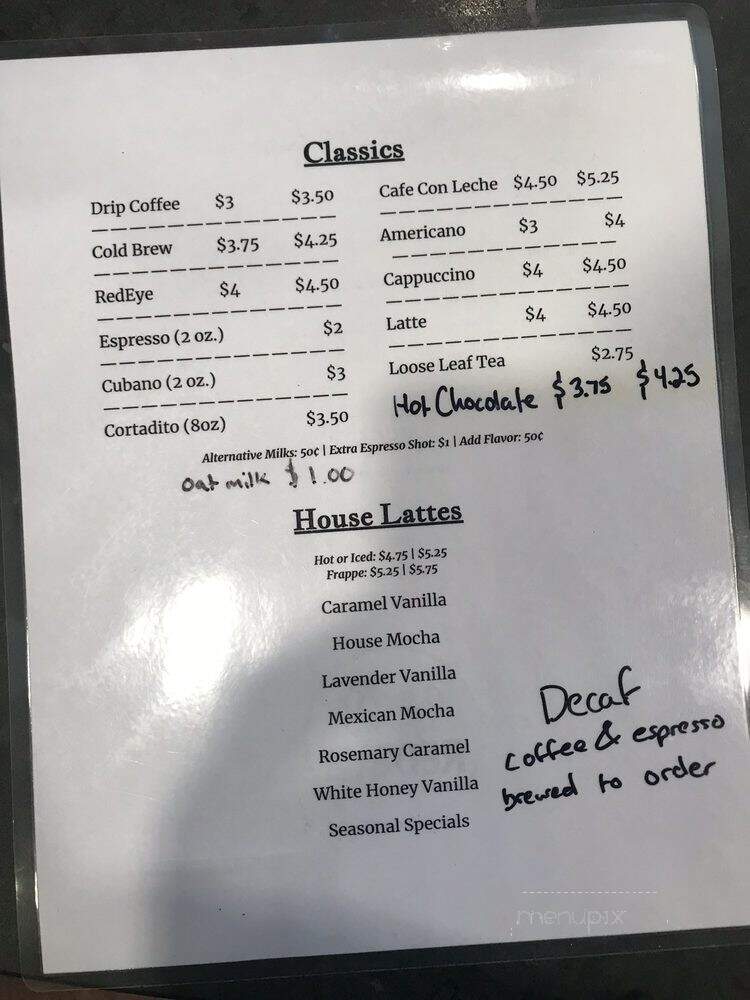 Classics
Drip Coffee $3 $3.50
Cold Brew $3.75 $4.25
RedEye $4 $4.50
Espresso (2 oz.) $2
Cubano (2 oz.) $3
Cortadito (8oz) $3.50
Cafe Con Leche $4.50 $5.25
Americano $3 $4
Cappuccino $4 $4.50
Latte $4 $4.50
Loose Leaf Tea $2.75
Hot Chocolate $3.75 $4.25
Alternative Milks: 50¢ | Extra Espresso Shot: $1 | Add Flavor: 50¢
oat milk $1.00
House Lattes
Hot or Iced: $4.75 | $5.25
Frappe: $5.25 | $5.75
Caramel Vanilla
House Mocha
Lavender Vanilla
Mexican Mocha
Rosemary Caramel
White Honey Vanilla
Seasonal Specials
Decaf
coffee & espresso
brewed to order
menupix